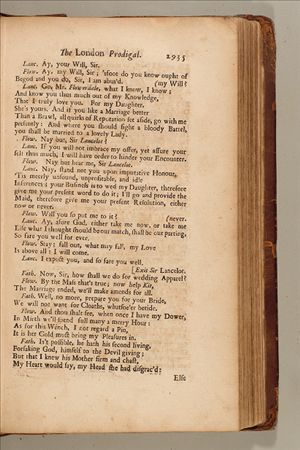 The London Prodigal. 2935
Lanc. Ay, your Will, Sir.
Flow. Ay, my Will, Sir; 'sfoot do you know ought of
Begod and you do, Sir, I am abus'd. (my Will?
Lanc. Go, Mr. Flowerdale, what I know, I know;
And know you thus much out of my Knowledge,
That I truly love you. For my Daughter,
She's yours. And if you like a Marriage better
Than a Brawl, all quirks of Reputation set aside, go with me
presently: And where you should fight a bloody Battel,
you shall be married to a lovely Lady.
Flow. Nay but, Sir Lancelot?
Lanc. If you will not embrace my offer, yet assure your
self thus much, I will have order to hinder your Encounter.
Flow. Nay but hear me, Sir Lancelot.
Lanc. Nay, stand not you upon imputative Honour,
'Tis meerly unsound, unprofitable, and idle
Inferences; your Business is to wed my Daughter, therefore
give me your present word to do it; I'll go and provide the
Maid, therefore give me your present Resolution, either
now or never.
Flow. Will you so put me to it? (never.
Lanc. Ay, afore God, either take me now, or take me
Else what I thought should be our match, shall be our parting,
So fare you well for ever.
Flow. Stay; fall out, what may fall, my Love
Is above all: I will come.
Lanc. I expect you, and so fare you well.
[Exit Sir Lancelot.
Fath. Now, Sir, how shall we do for wedding Apparel?
Flow. By the Mass that's true; now help Kit,
The Marriage ended, we'll make amends for all.
Fath. Well, no more, prepare you for your Bride,
We will not want for Cloaths, whatsoe'er betide.
Flow. And thou shalt see, when once I have my Dower,
In Mirth we'll spend full many a merry Hour:
As for this Wench, I not regard a Pin,
It is her Gold must bring my Pleasures in.
Fath. Is't possible, he hath his second living,
Forsaking God, himself to the Devil giving;
But that I knew his Mother firm and chast,
My Heart would say, my Head she had disgrac'd:
Else